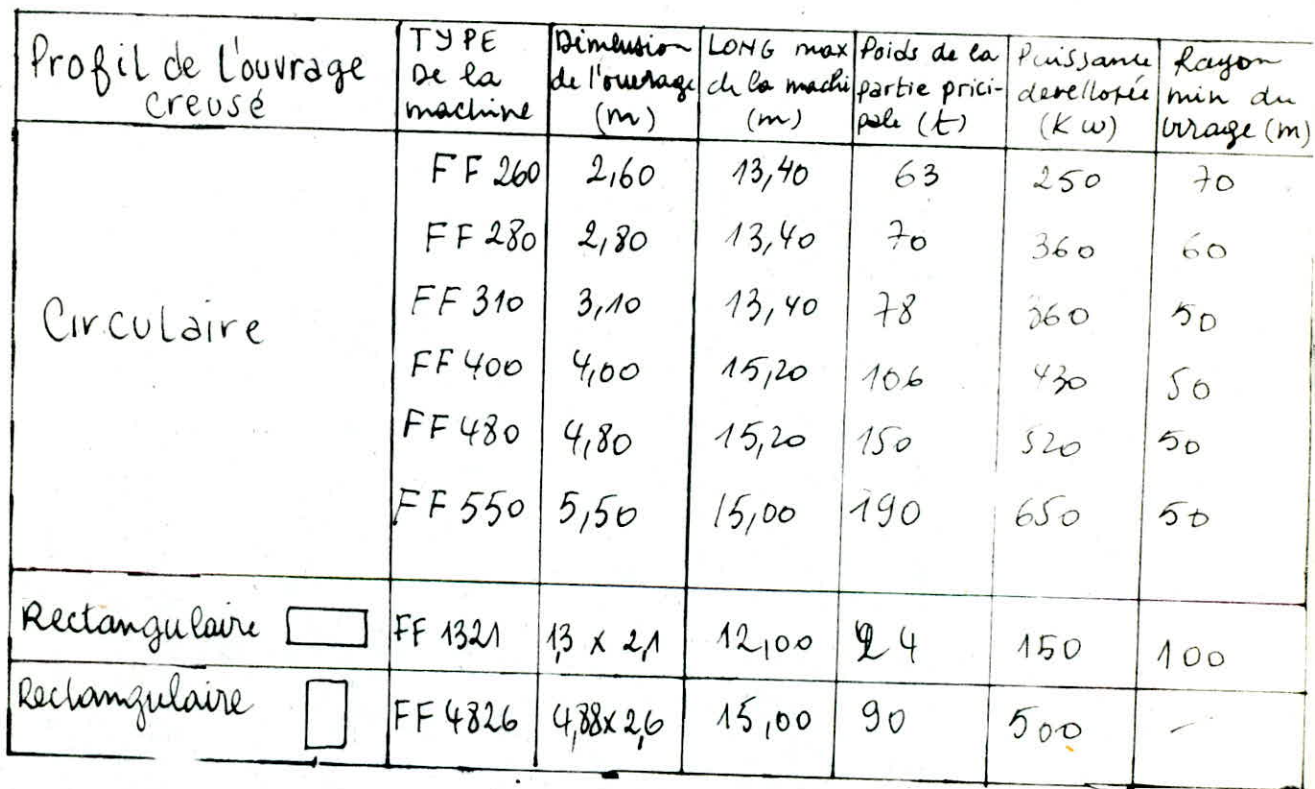 Profil de L'ouvrage creusé | TYPE De la machine | Dimension de l'ouvrage (m) | LONG max de la machi (m) | Poids de la partie prici-pale (t) | Puissance devellopée (Kw) | Rayon min du virage (m)
Circulaire | FF 260 | 2,60 | 13,40 | 63 | 250 | 70
FF 280 | 2,80 | 13,40 | 70 | 360 | 60
FF 310 | 3,10 | 13,40 | 78 | 360 | 50
FF 400 | 4,00 | 15,20 | 106 | 430 | 50
FF 480 | 4,80 | 15,20 | 150 | 520 | 50
FF 550 | 5,50 | 15,00 | 190 | 650 | 50
Rectangulaire | FF 1321 | 13 x 2,1 | 12,00 | 24 | 150 | 100
Rectangulaire | FF 4826 | 4,88x2,6 | 15,00 | 90 | 500 | -